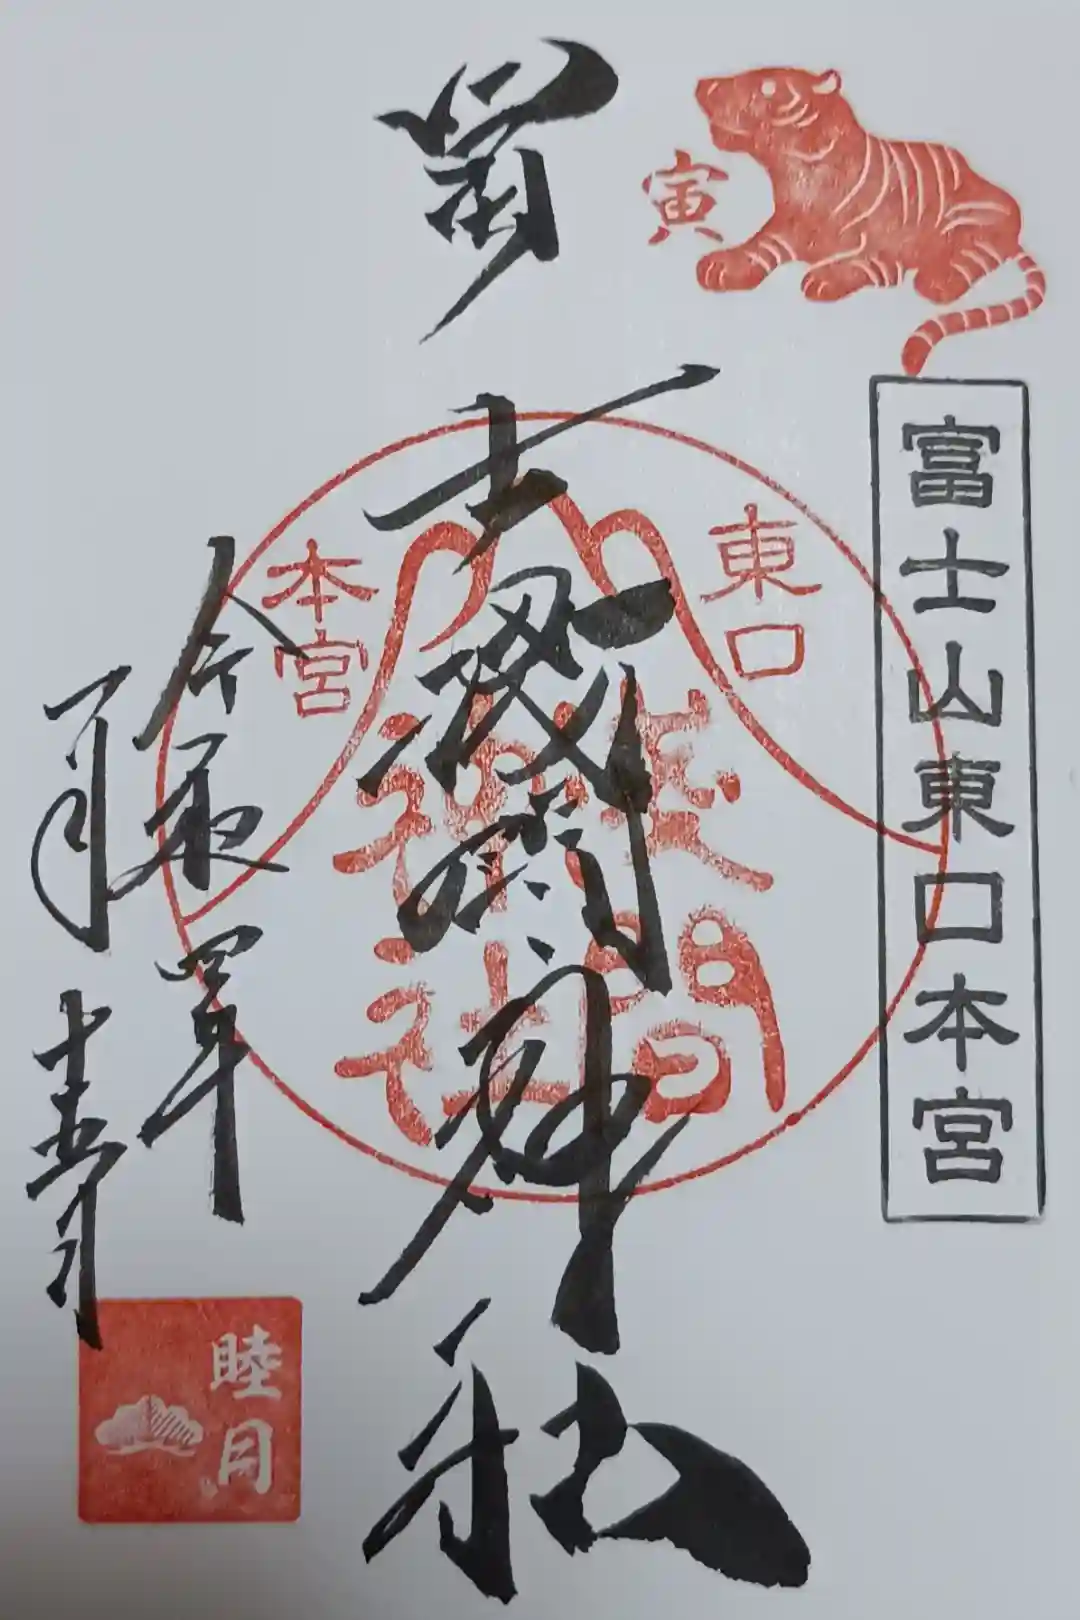 寅
富士山東口本宮
冨士浅間神社
東口
本宮
浅間
神社
令和四年
一月十五日
睦月